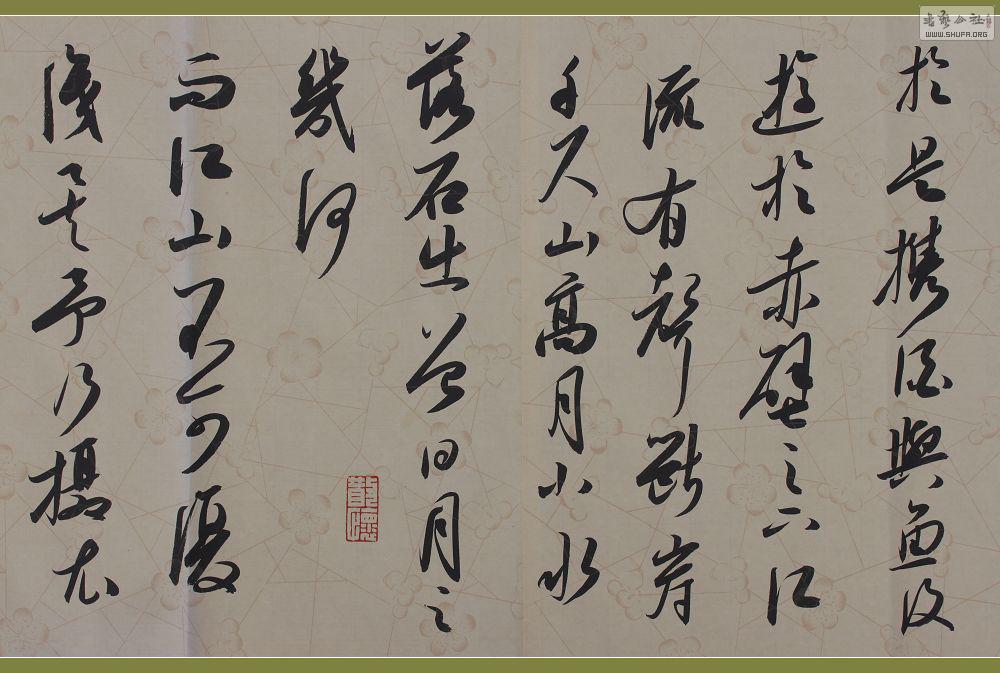 於是攜酒與魚復
遊於赤壁之下江
流有聲斷岸
千尺山高月小水
落石出曾日月之
幾何
而江山不可復
識矣予乃攝衣
散懷
書藝公社
WWW.SHUFA.ORG